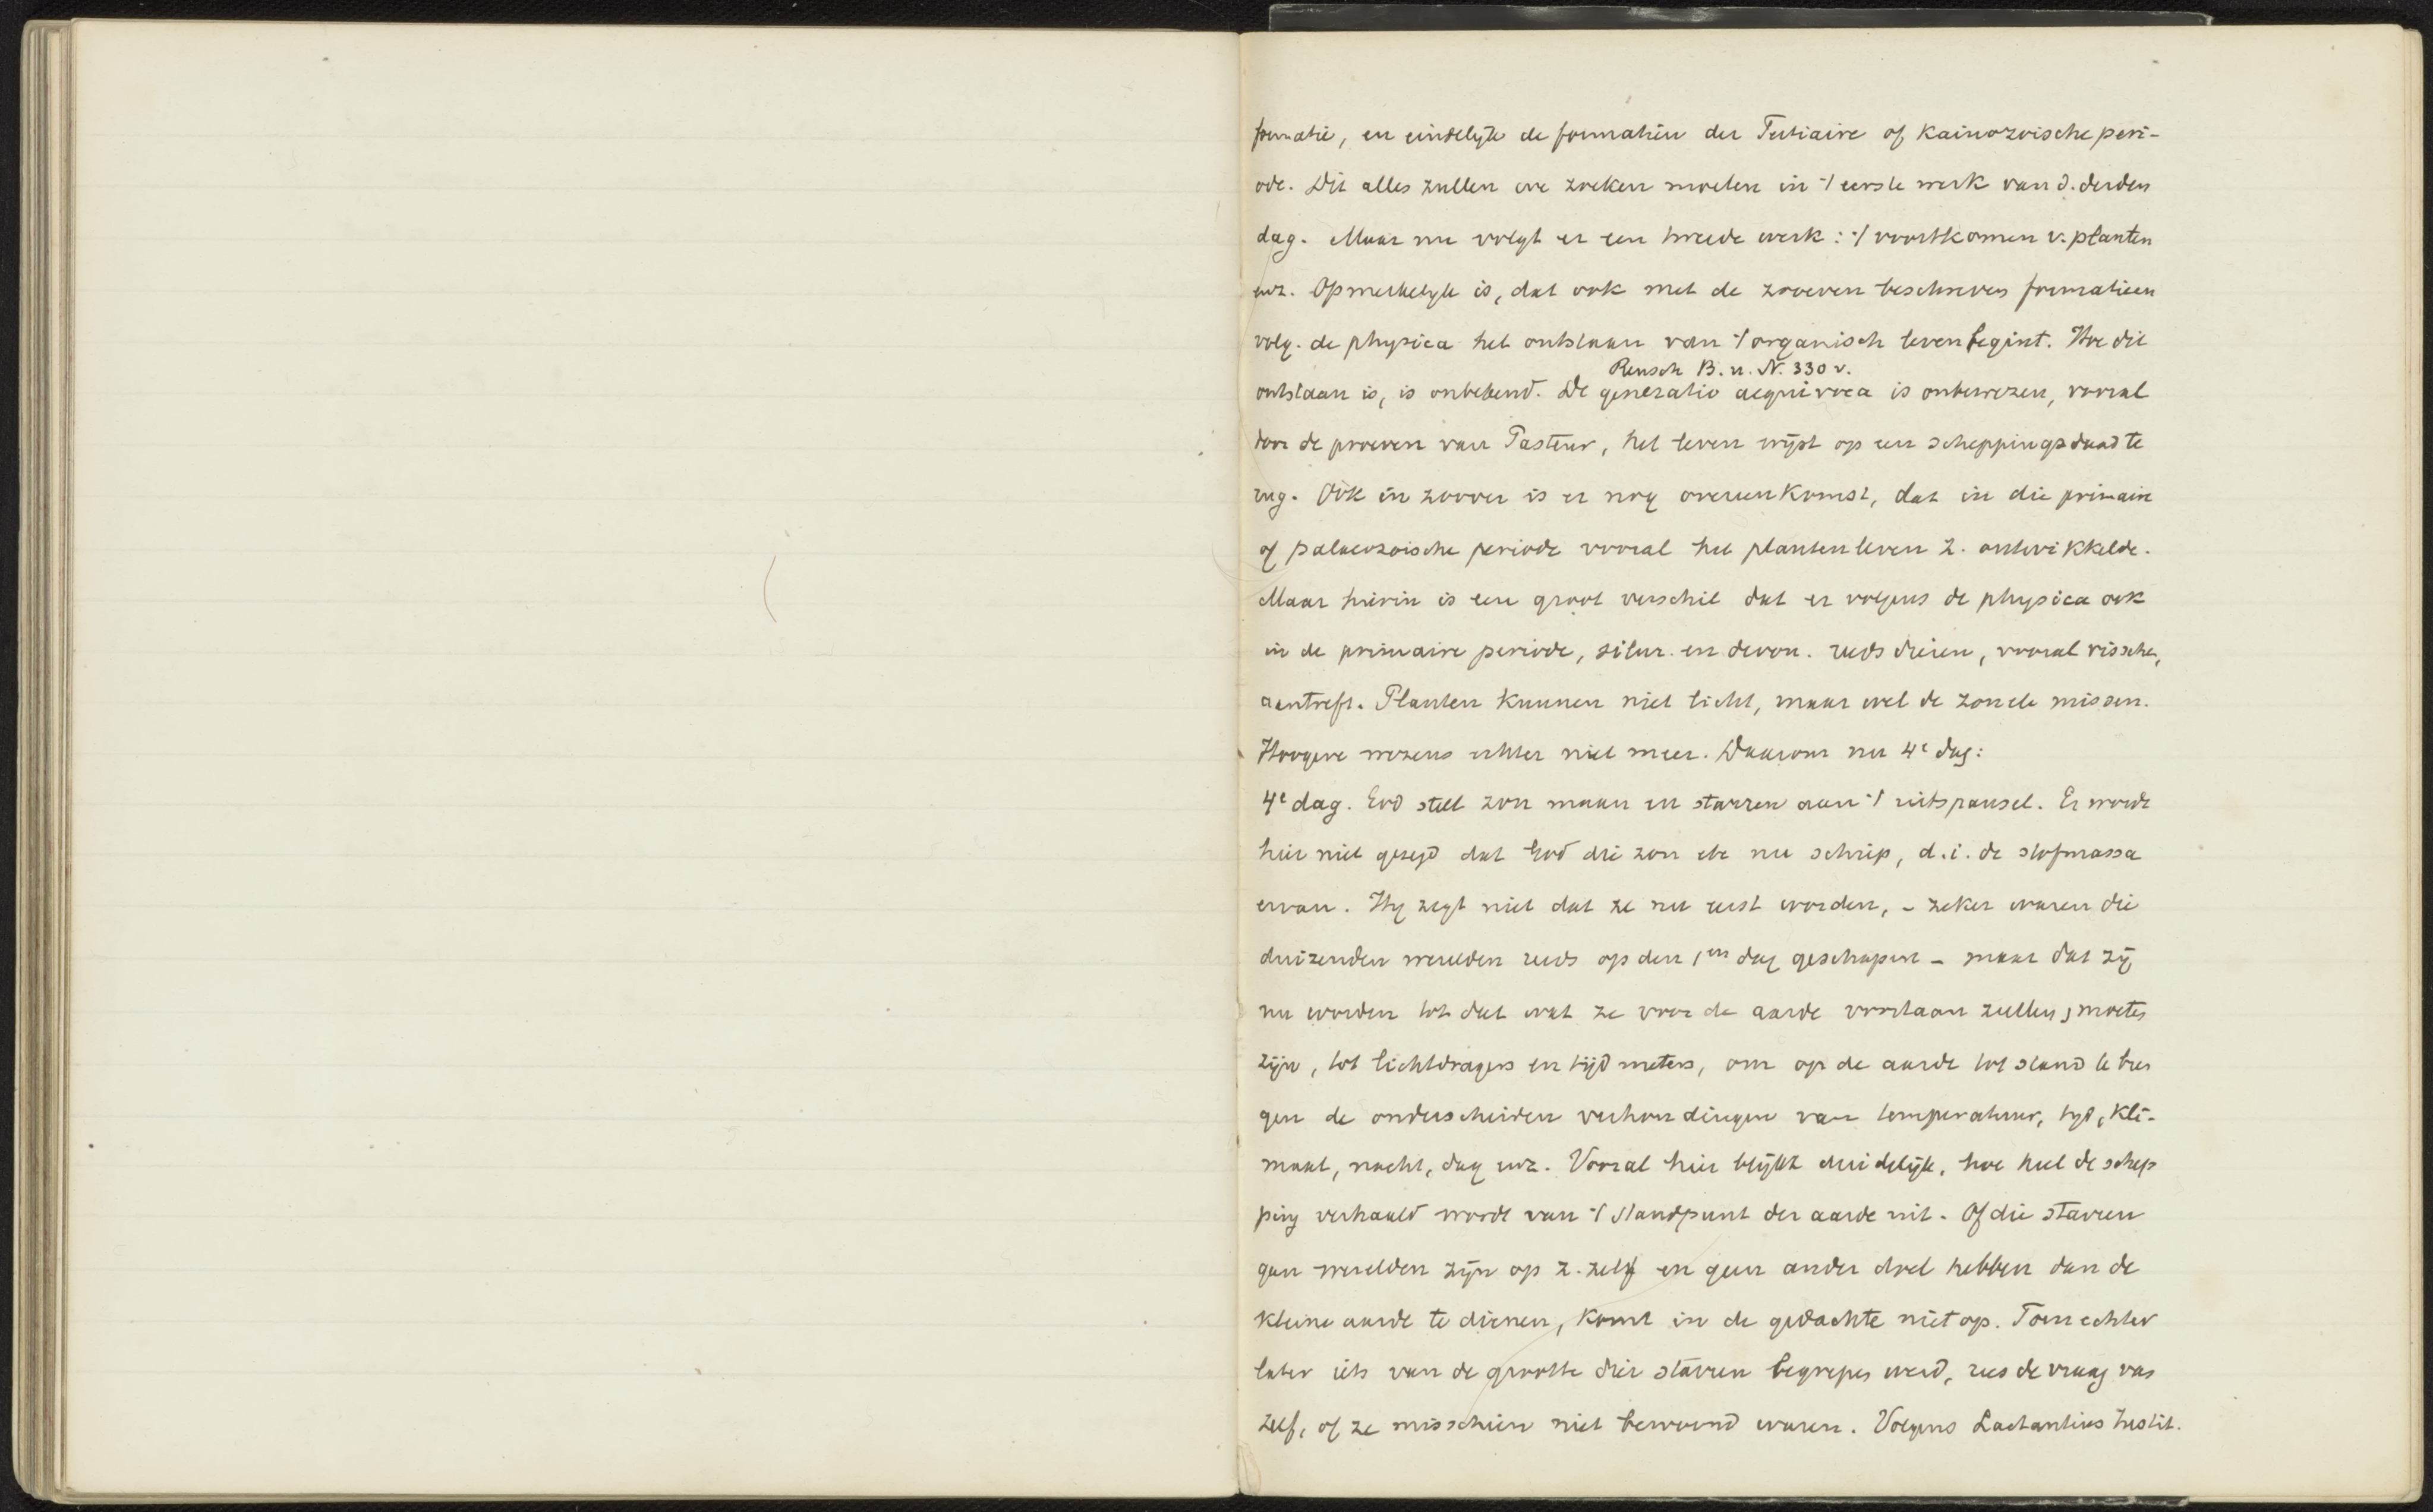 formatie, en eindelijk de formatiën der Tertiaire of kainozoische peri-
ode. Dit alles zullen we zoeken moeten in 't eerste werk van d. derden
dag. Maar nu volgt er een tweede werk: 't voortkomen v. planten
enz. Opmerkelyk is, dat ook met de zooeven beschreven formatieen
volg. de physica het ontstaan van 't organisch leven begint. Hoe dit
Reusch B. u. N. 330 v.
ontstaan is, is onbekend. De generatio aequivoca is onbewezen, vooral
door de proeven van Pasteur, het leven wijst op een scheppingsdaad te
rug. Ook in zoover is er nog overeenkomst, dat in die primaire
of palaeozoische periode vooral het plantenleven z. ontwikkelde.
Maar hierin is een groot verschil dat er volgens de physica ook
in de primaire periode, silur. en devon. reeds dieren, vooral visschen,
aantreft. Planten kunnen niet licht, maar wel de zon etc missen.
Hoogere wezens echter niet meer. Daarom nu 4e dag:
4e dag. God stelt zon maan en starren aan 't uitspansel. Er wordt
hier niet gezegd dat God die zon etc nu schiep, d.i. de stofmassa
ervan. Hy zegt niet dat ze nu eerst worden, - zeker waren die
duizenden werelden reeds op den 1en dag geschapen - maar dat zij
nu worden tot dat wat ze voor de aarde voortaan zullen, moeten
zijn, tot lichtdragers en tijdmeters, om op de aarde tot stand te bren
gen de onderscheiden verhoudingen van temperatuur, tyd, kli-
maat, nacht, dag enz. Vooral hier blijkt duidelijk, hoe heel de schep
ping verhaald wordt van 't standpunt der aarde uit. Of die starren
gan werelden zijn op z. zelf en geen ander doel hebben dan de
kleine aarde te dienen, komt in de gedachte niet op. Toen echter
later iets van de grootte dier starren begrepen werd, rees de vraag van
zelf, of ze misschien niet bewoond waren. Volgens Lactantius Instit.